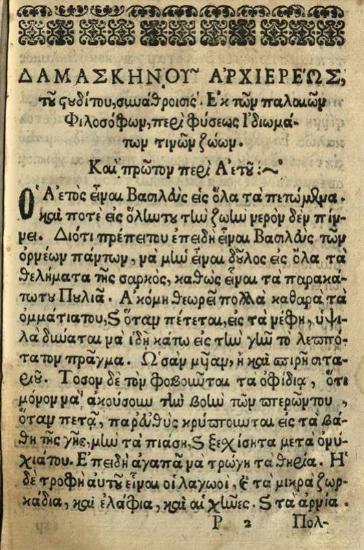 ΔΑΜΑΣΚΗΝΟΥ͂ ἈΡΧΙΕΡΕΏΣ,
τȣ͂ ϛȣδίτου, συνάθροισις. Ἐκ τῶν παλαιῶν
Φιλοσόφων, περὶ φύσεως Ἰδιωμά-
των τινῶν ζώων.
Καὶ πρῶτον περὶ Ἀετȣ͂ :~
Ὁ Ἀετὸς εἶναι Βασιλεὺς εἰς ὅλα τὰ πετώμενα.
καὶ ποτὲ εἰς ὅλίω τίω ζωίω νερὸν δὲν πίν-
νει. Διότι πρέπει του ἐπειδὴ εἶναι Βασιλεὺς τῶν
ὀρνέων πάντων, νὰ μίω εἶναι δȣ͂λος εἰς ὅλα τὰ
θελήματα τῆς σαρκός, καθὼς εἶναι τὰ παρακά-
τω του Πȣλιά. Ἀκόμη θεωρεῖ πολλὰ καθαρὰ τὰ
ὀμμάτιά του, ϗ ὅταν πέτεται, εἰς τὰ νέφη, ὑψι-
λὰ δύναται νὰ ἰδῇ κάτω εἰς τίω γίω τὸ λεπτό-
τατον πρᾶγμα. Ὡσὰν μῦαν, ἢ καὶ σπυρὴ σιτα-
ρίȣ. Τόσον δὲ τὸν φοβοιῶται τὰ ὀφίδια, ὅτι
μόνον νὰ ἀκούσȣν τίω βοίω τῶν πτερῶν του,
ὅταν πετᾷ, παρευθὺς κρύπτονται εἰς τὰ βά-
θη τῆς γῆς, μίω τὰ πιάσῃ, ϗ ξεχίσῃ τα μετὰ ὀνύ-
χιά του. Ἐπειδὴ ἀγαπᾷ νὰ τρώγῃ τὰ θηρία. Ἡ
δὲ τροφή αὐτȣ͂ εἶναι οἱ λαγωοί, ϗ τὰ μικρὰ ζωρ-
κάδια, καὶ ἐλάφια, καὶ αἱ χῆνες. ϗ τὰ ἀρνία.
P 2 Πολ-